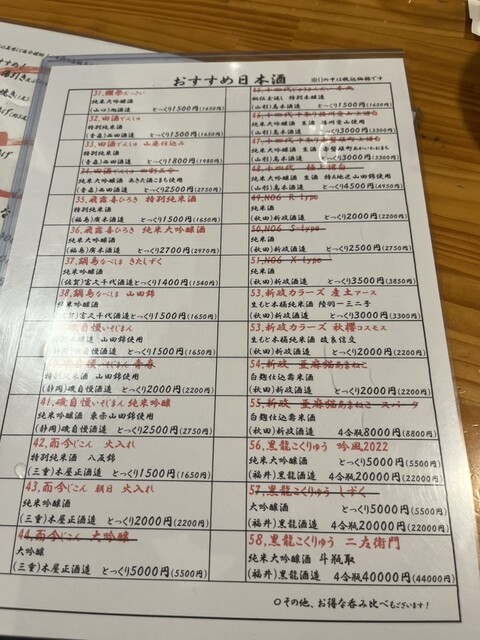 おすすめ日本酒
※()の中は税込価格です
純米大吟醸酒
(山口)旭酒造 とっくり1500円(1650円)
32,田酒でんしゅ
特別純米酒
(青森)西田酒造 とっくり1500円(1650円)
33,田酒でんしゅ 山廃仕込み
特別純米酒
(青森)西田酒造 とっくり1800円(1980円)
純米大吟醸
(青森)西田酒造 とっくり2500円(2750円)
35,飛露喜ひろき 特別純米酒
特別純米酒
(福島)廣木酒造 とっくり1500円(1650円)
36,飛露喜ひろき 純米大吟醸
純米大吟醸
(福島)廣木酒造 とっくり2700円(2970円)
37,鍋島なべしま きたしずく
純米吟醸酒
(佐賀)富久千代酒造 とっくり1400円(1540円)
38,鍋島なべしま 山田錦
純米吟醸酒
(佐賀)富久千代酒造 とっくり1500円(1650円)
磯自慢いそじまん
山田錦使用
磯自慢酒造 とっくり1500円(1650円)
特別純米酒 山田錦使用
(静岡)磯自慢酒造 とっくり2000円(2200円)
41,磯自慢いそじまん 純米吟醸
純米吟醸 東条山田錦使用
(静岡)磯自慢酒造 とっくり2500円(2750円)
42,而今じこん 火入れ
特別純米酒 八反錦
(三重)木屋正酒造 とっくり1500円(1650円)
43,而今じこん 朝日 火入れ
純米吟醸
(三重)木屋正酒造 とっくり2000円(2200円)
44,而今じこん 大吟醸
大吟醸
(三重)木屋正酒造 とっくり5000円(5500円)
特別本醸造
(山形)高木酒造 とっくり1500円(1650円)
純米大吟醸 生酒
(山形)高木酒造 とっくり3000円(3300円)
純米大吟醸 生酒
(山形)高木酒造 とっくり3000円(3300円)
純米大吟醸 生酒 特A地区山田錦使用
(山形)高木酒造 とっくり4500円(4950円)
49,NO6 R-type
純米酒
(秋田)新政酒造 とっくり2000円(2200円)
50,NO6 S-type
純米酒
(秋田)新政酒造 とっくり2500円(2750円)
51,NO6 X-type
純米酒
(秋田)新政酒造 とっくり3500円(3850円)
53,新政カラーズ 産土アース
生もと木桶純米酒 陸羽一三二号
(秋田)新政酒造 とっくり3000円(3300円)
53,新政カラーズ 秋櫻コスモス
生もと木桶純米酒 改良信交
(秋田)新政酒造 とっくり2000円(2200円)
54,新政 亜麻猫あまねこ
白麹仕込純米酒
(秋田)新政酒造 とっくり2000円(2200円)
55,新政 亜麻猫あまねこ スパーク
白麹仕込壽米酒
(秋田)新政酒造 4合瓶8000円(8800円)
56,黒龍こくりゅう 吟風2022
純米大吟醸酒 とっくり5000円(5500円)
(福井)黒龍酒造 4合瓶20000円(22000円)
57,黒龍こくりゅう しずく
大吟醸酒 とっくり5000円(5500円)
(福井)黒龍酒造 4合瓶20000円(22000円)
58,黒龍こくりゅう 二左衛門
純米大吟醸酒 斗瓶取
(福井)黒龍酒造 4合瓶40000円(44000円)
○その他、お得な呑み比べもございます!